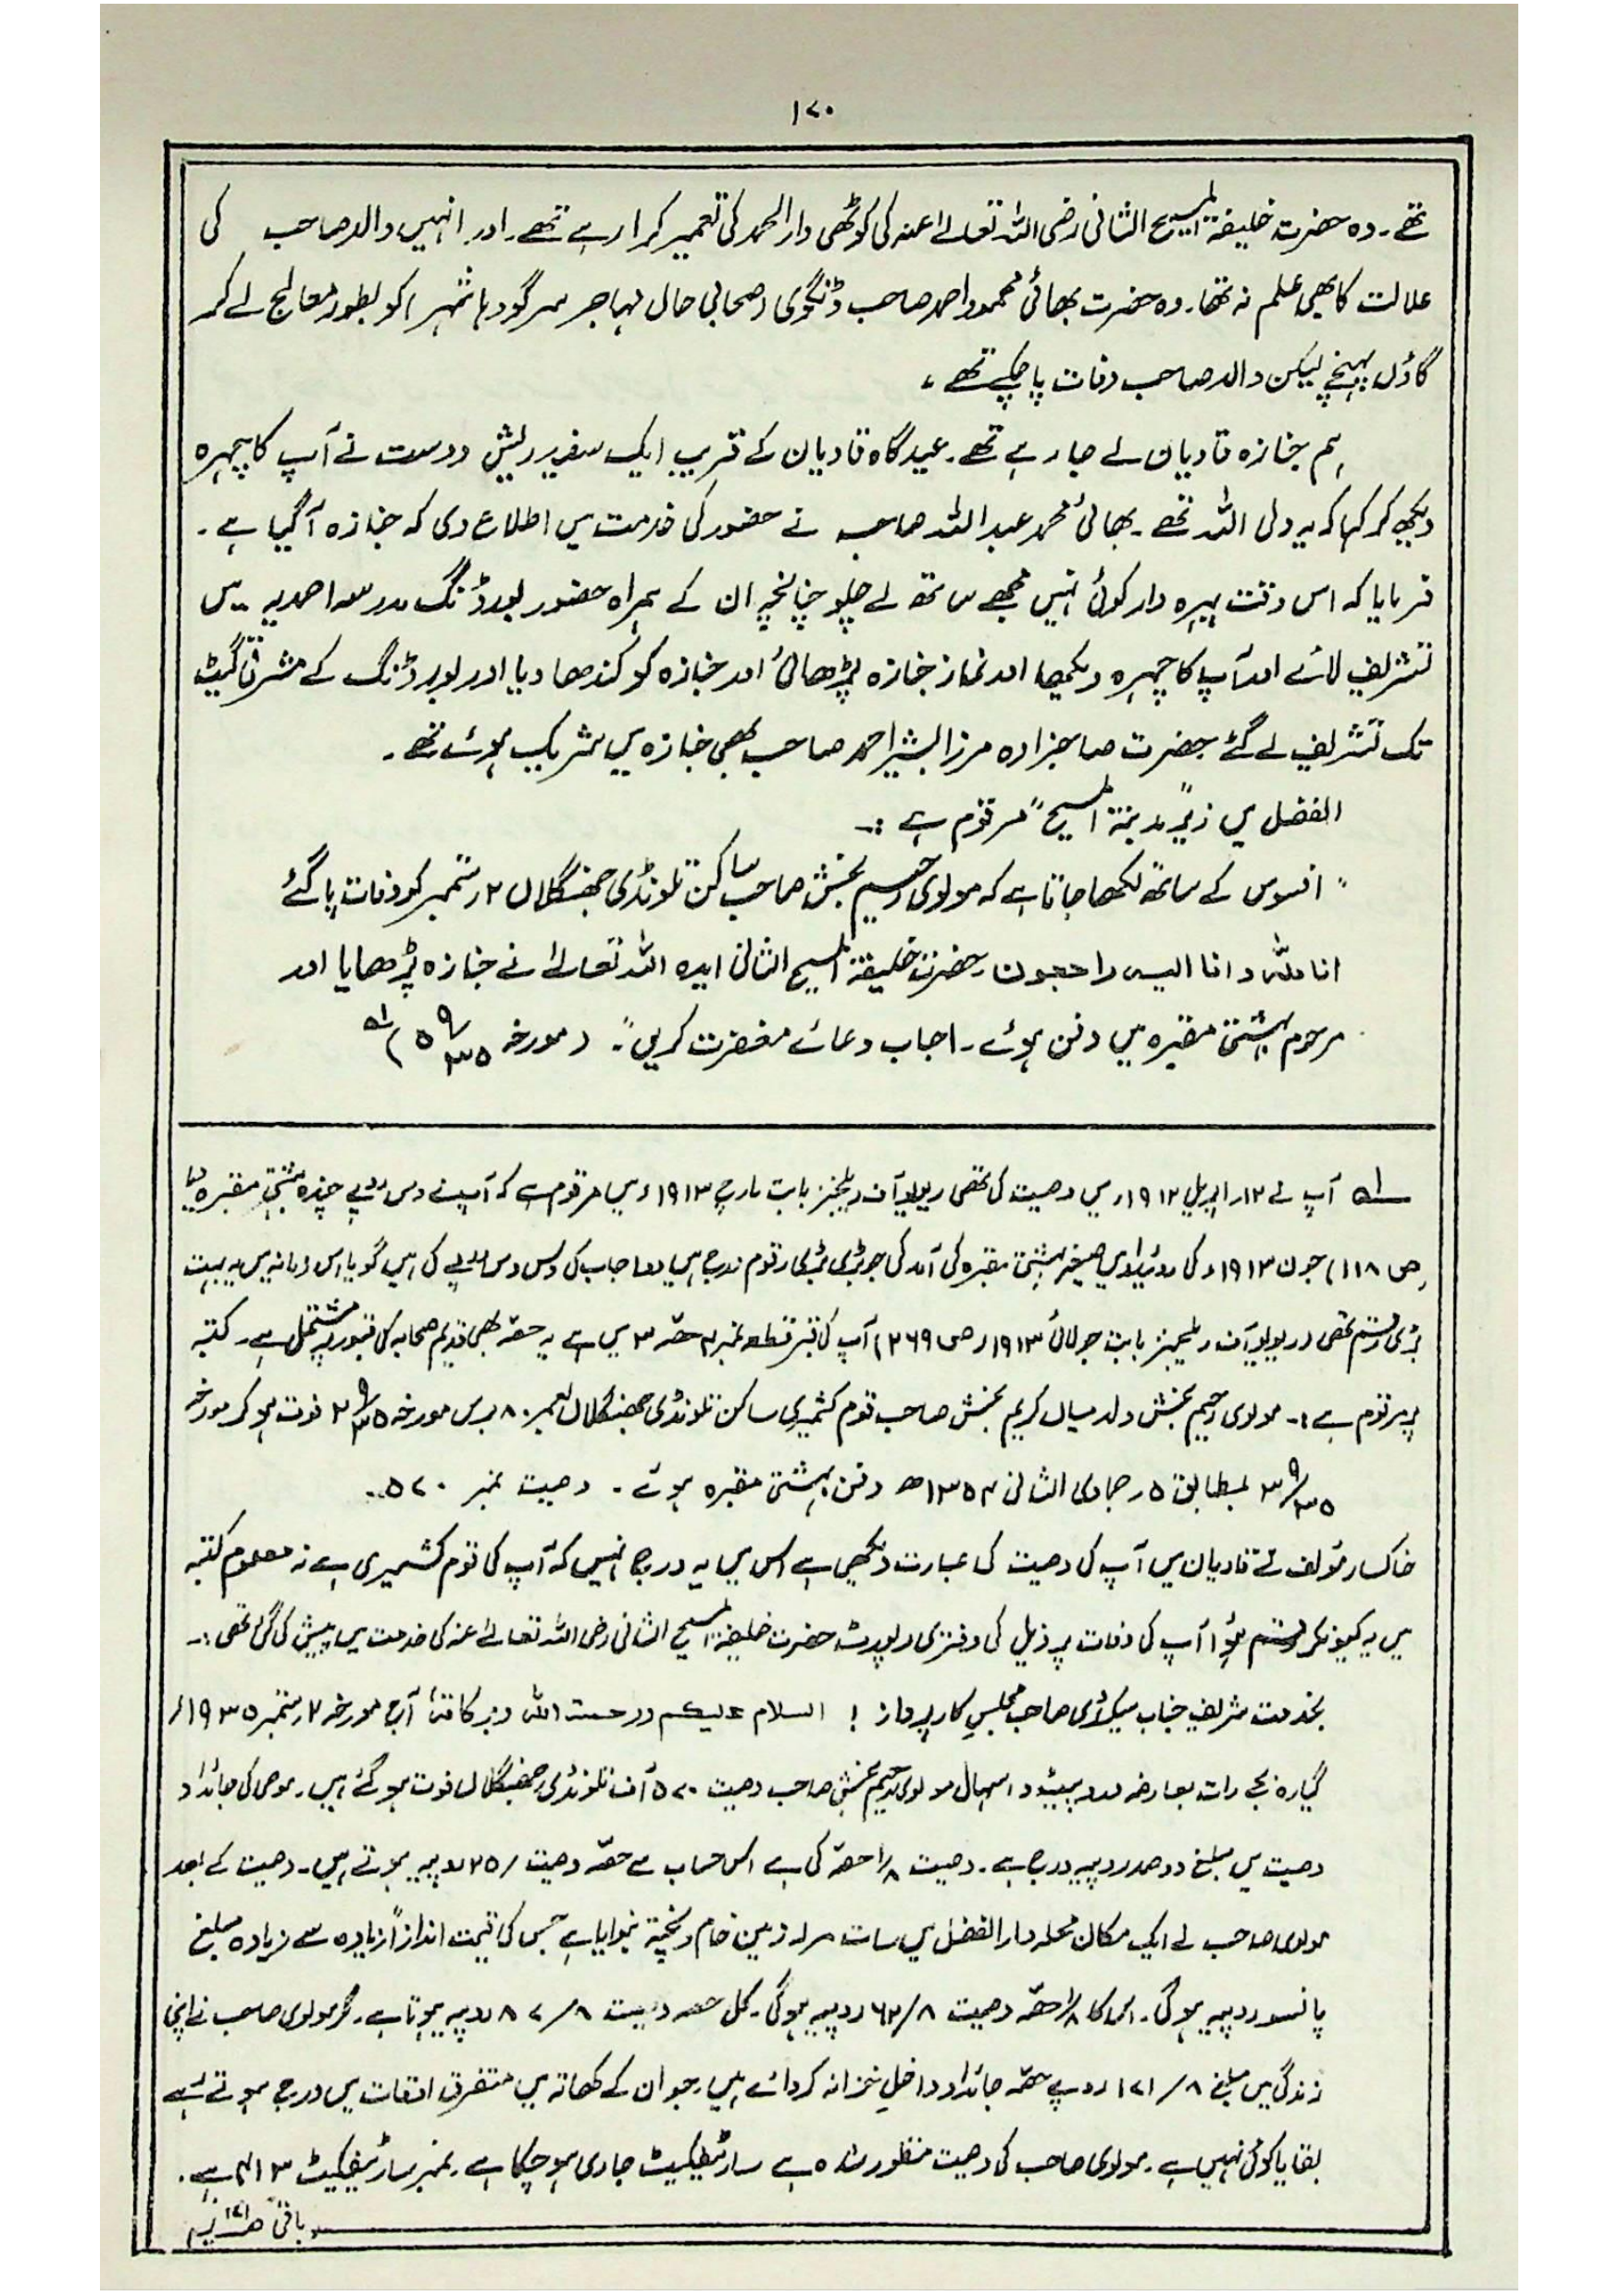 ۱۷۰
تھے۔ وہ حضرت خلیفۃ المسیح الثانی رضی اللہ تعالےٰ عنہ کی کوٹھی دار الحمد کی تعمیر کرا رہے تھے۔ اور انہیں والد صاحب کی
علالت کا بھی علم نہ تھا۔ وہ حضرت بھائی محمود احمد صاحب ڈنگوی (صحابی حال مہاجر سرگودہا شہر) کو بطور معالج لے کر
گاؤں پہنچے لیکن والد صاحب وفات پا چکے تھے ،
ہم جنازہ قادیان لے جا رہے تھے۔ عیدگاہ قادیان کے قریب ایک سفید ریش دوست نے آپ کا چہرہ
دیکھ کر کہا کہ یہ ولی اللہ تھے۔ بھائی محمد عبداللہ صاحب نے حضور کی خدمت میں اطلاع دی کہ جنازہ آگیا ہے۔
فرمایا کہ اس وقت پہرہ دار کوئی نہیں مجھے ساتھ لے چلو چنانچہ ان کے ہمراہ حضور بورڈنگ مدرسہ احمدیہ میں
تشریف لائے اور آپ کا چہرہ دیکھا اور نماز جنازہ پڑھائی اور جنازہ کو کندھا دیا اور بورڈنگ کے مشرقی گیٹ
تک تشریف لے گئے حضرت صاحبزادہ مرزا بشیر احمد صاحب بھی جنازہ میں شریک ہوئے تھے۔
الفضل میں زیر "مدینۃ المسیح" مرقوم ہے :۔
" افسوس کے ساتھ لکھا جاتا ہے کہ مولوی رحیم بخش صاحب ساکن تلونڈی جھنگلاں ۲ ستمبر کو وفات پا گئے
انا للہ و انا الیہ راجعون۔ حضرت خلیفۃ المسیح الثانی ایدہ اللہ تعالےٰ نے جنازہ پڑھایا اور
مرحوم بہشتی مقبرہ میں دفن ہوئے۔ احباب دعائے مغفرت کریں"۔ (مورخہ ۵/۹/۳۵) لہ
لہ آپ نے ۱۲ر اپریل ۱۹۱۲ء میں وصیت کی تھی ریویو آف ریلیجنز بابت مارچ ۱۹۱۳ء میں مرقوم ہے کہ آپ نے دس روپے چندہ بہشتی مقبرہ دیا
(ص ۱۱۸) جون ۱۹۱۳ء کی روئیداد میں صیغہ بہشتی مقبرہ کی آمد کی جو بڑی بڑی رقوم درج ہیں احباب کی دس دس روپے کی ہیں گویا اس زمانہ میں یہ بہت
بڑی رقم تھی (ریویو آف ریلیجنز بابت جولائی ۱۹۱۳ء ص ۲۶۹) آپ کی قبر قطعہ نمبر ۴ حصہ ۳ میں ہے یہ حصہ بھی قدیم صحابہ کی قبور پر مشتمل ہے۔ کتبہ
پر مرقوم ہے :۔ مولوی رحیم بخش ولد میاں کریم بخش صاحب قوم کشمیری ساکن تلونڈی جھنگلاں بعمر ۸۰ برس مورخہ ۲/۹/۳۵ فوت ہو کر مورخہ
۳/۹/۳۵ بمطابق ۵ر جمادی الثانی ۱۳۵۴ھ دفن بہشتی مقبرہ ہوئے۔ وصیت نمبر ۵۷۰۔
خاکسار مؤلف نے قادیان میں آپ کی وصیت کی عبارت دیکھی ہے اس میں یہ درج نہیں کہ آپ کی قوم کشمیری ہے نہ معلوم کتبہ
میں یہ کیونکر رقم ہوا آپ کی وفات پر ذیل کی دفتری رپورٹ حضرت خلیفۃ المسیح الثانی رضی اللہ تعالےٰ عنہ کی خدمت میں پیش کی گئی تھی :۔
بخدمت شریف جناب سیکرٹری صاحب مجلس کارپرداز ! السلام علیکم ورحمتہ اللہ وبرکاتہٗ آج مورخہ ۲ر ستمبر ۱۹۳۵ء
گیارہ بجے رات بعارضہ درد پیٹ و اسہال مولوی رحیم بخش صاحب وصیت ۵۷۰ آف تلونڈی جھنگلاں فوت ہو گئے ہیں۔ موصی کی جائداد
وصیت میں مبلغ دو صد روپیہ درج ہے۔ وصیت ۱/۸ حصہ کی ہے اس حساب سے حصہ وصیت /۲۵ روپیہ ہوتے ہیں۔ وصیت کے بعد
مولوی صاحب نے ایک مکان محلہ دار الفضل میں سات مرلہ زمین خام و پختہ بنوایا ہے جس کی قیمت اندازاً زیادہ سے زیادہ مبلغ
پانسو روپیہ ہوگی۔ اس کا ۱/۸ حصہ وصیت ۶۲/۸ روپیہ ہوگی۔ کل حصہ وصیت ۸۷/۸ روپیہ ہوتا ہے۔ مگر مولوی صاحب نے اپنی
زندگی میں مبلغ ۱۷۱/۸ روپے حصہ جائداد داخل خزانہ کروائے ہیں۔ جو ان کے کھاتہ میں متفرق اوقات میں درج ہوتے رہے
بقایا کوئی نہیں ہے۔ مولوی صاحب کی وصیت منظور شدہ ہے سارٹیفکیٹ جاری ہو چکا ہے۔ نمبر سارٹیفکیٹ ۴۱۳ ہے۔
باقی ص ۱۷۱ پر